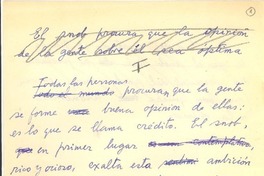 1
El snob procura que la opinión
de la gente sobre él sea óptima
I
Todas las personas
todo el mundo procuran que la gente
se forme buena opinión de ellas:
es lo que se llama crédito. El snob,
que en primer lugar es contemplativo,
rico y ocioso, exalta esta ambición